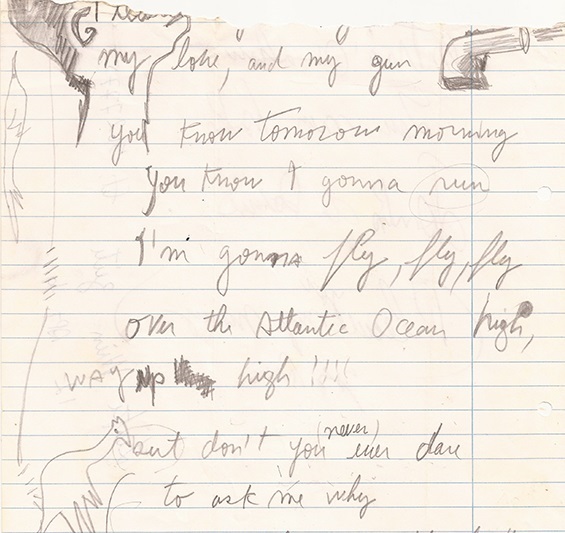 my love," and my" gun
you know tomorow morning
you know I gonna run
I'm gonna fly, fly, fly
over the Atlantic Ocean high,
way up high !!!!
but don't you (never) ever dare
to ask me why